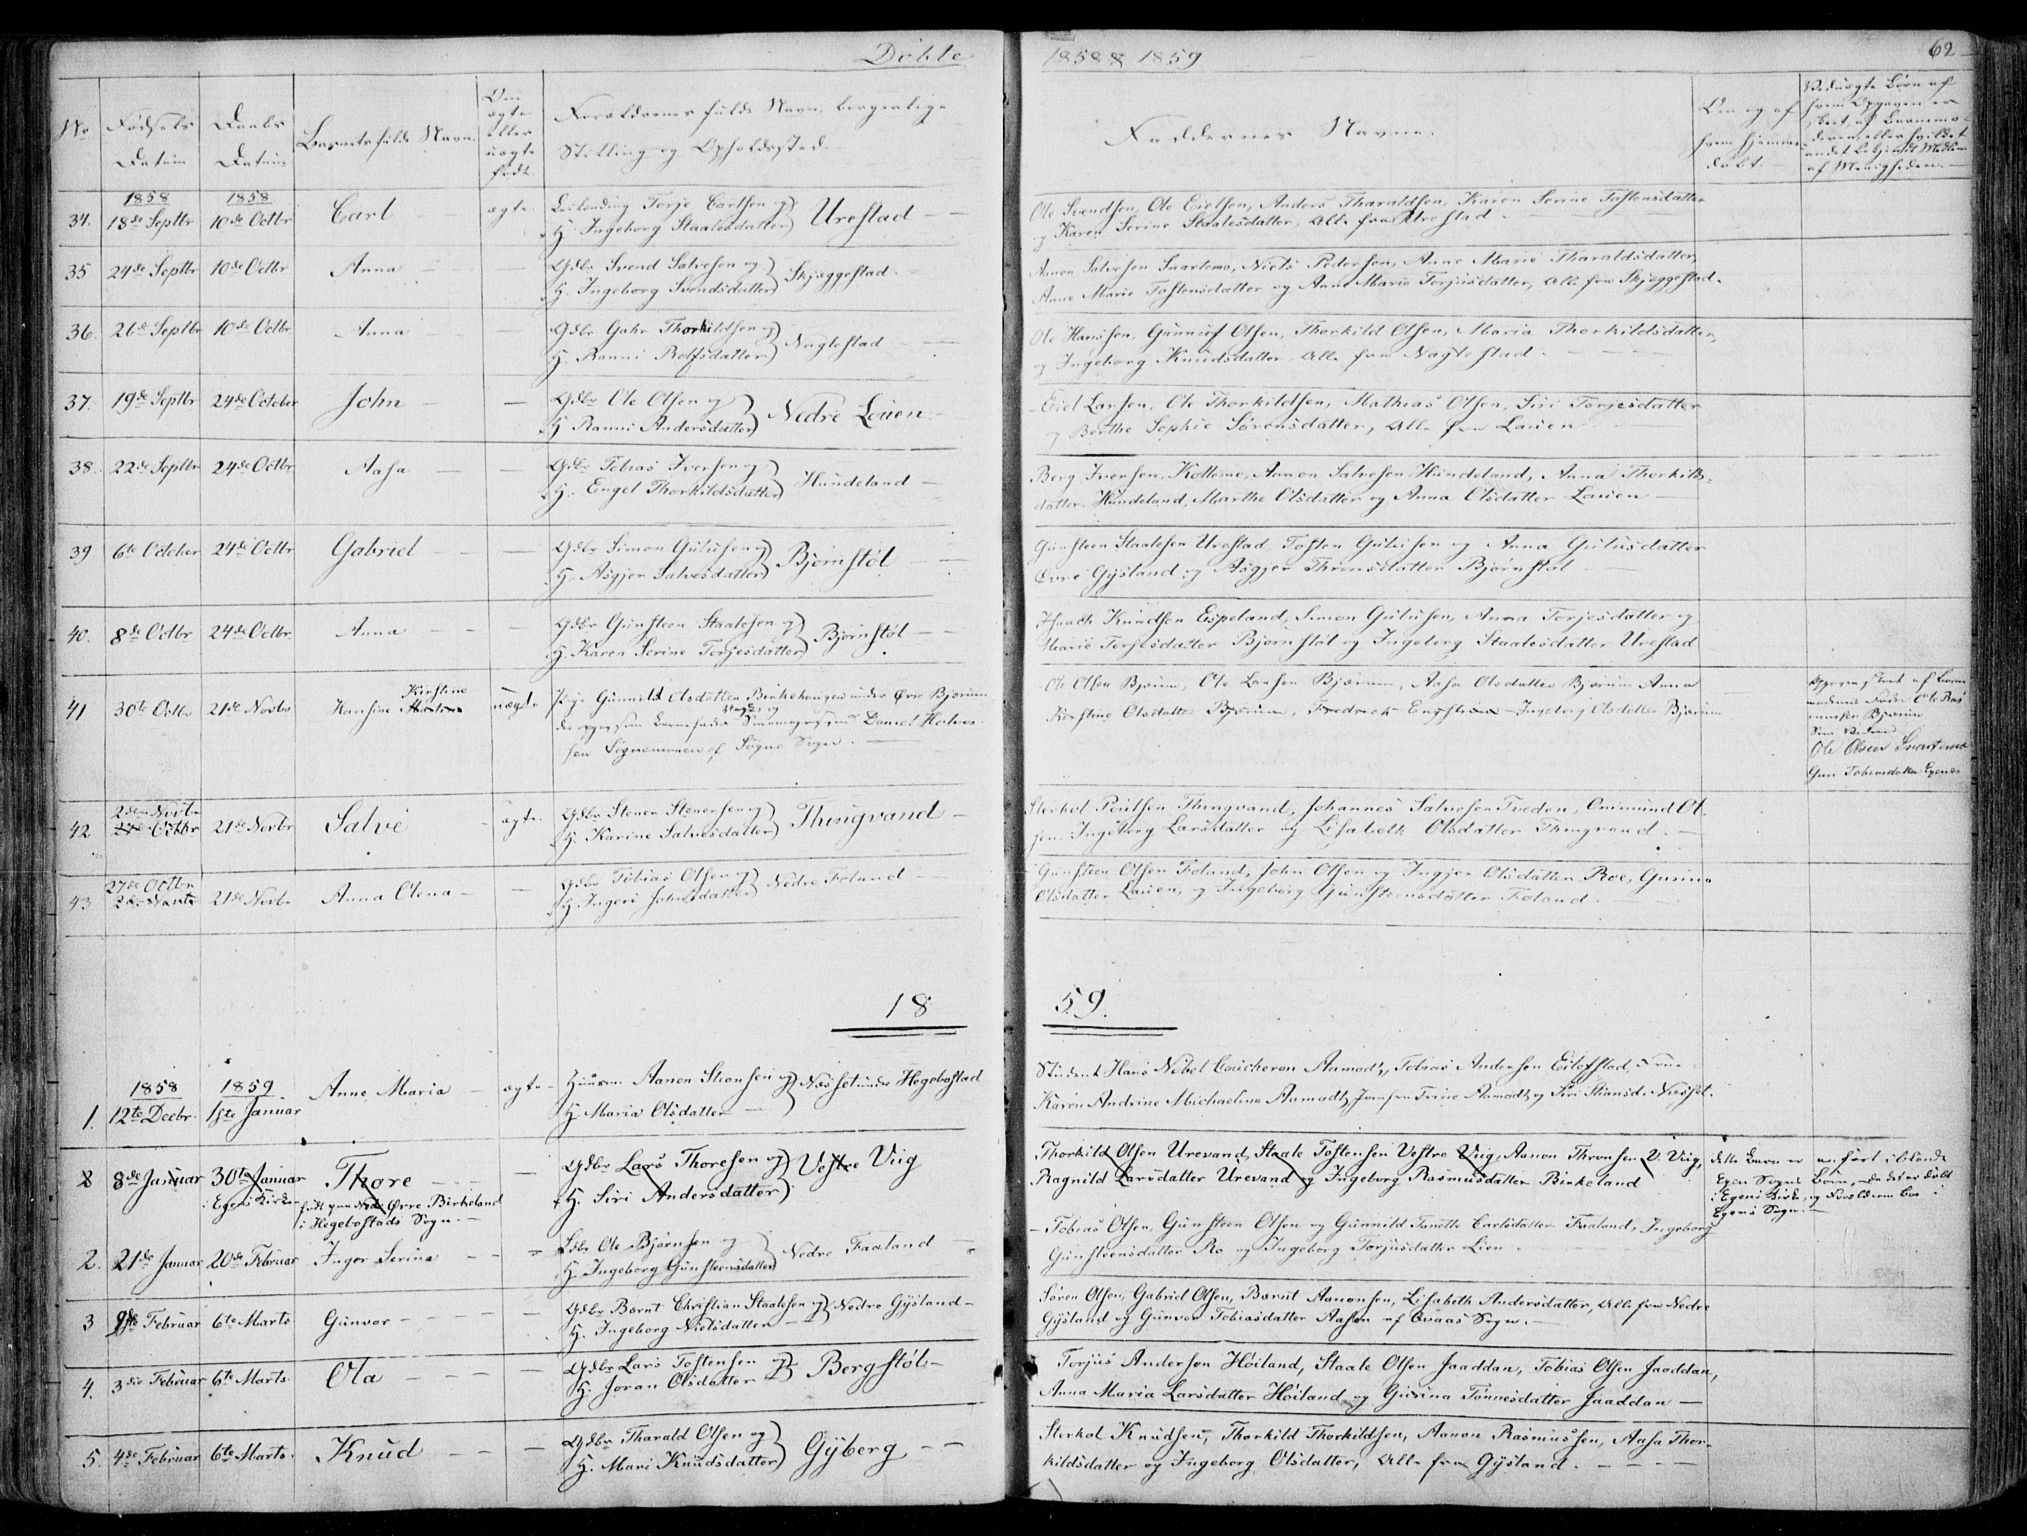 Døbte
1858 & 1859
62
No
Fødsels Datum
Daabs Datum
Barnets fulde Navn
Om ægte eller uægte født
Forældrenes fulde Navn, borgerlige Stilling og Opholdssted.
Faddernes Navne.
Om og af hvem hjemme-døbt.
34. 1858 18de Septbr 1858 10de Octbr Carl ægte Torje Carlsen og
H. Ingeborg Staalesdatter Urestad
Ole Svendsen, Ole Eielsen, Anders Tharaldsen, Karen Serine Tostensdatter
og Karen Serine Staalesdatter, alle fra Urestad.
35 24de Septbr 10de Octbr Anna Gdbr Svend Salvesen og
H. Ingeborg Svendsdatter Skjeggestad.
Aanon Salvesen Snartemo, Niels Pedersen, Anne Marie Tharaldsdatter,
Anne Marie Tostensdatter og Anne Marie Torjusdatter, alle fra Skjeggestad.
36. 26de Septbr 10de Octbr Anna Gdbr Gahr Thorkildsen og
H. Ranni Rolfsdatter Naglestad
Ole Hansen, Gunnuf Olsen, Thorkild Olsen, Maria Thorkildsdatter,
og Ingeborg Knudsdatter, alle fra Naglestad.
37. 19de Septbr 24de October John Gdbr Ole Olsen og
H. Ranni Andersdatter Nedre Lauen
Eiel Larsen, Ole Thorkildsen, Mathias Olsen, Siri Torjesdatter
og Berthe Sophie Sørensdatter, alle fra Lauen
38. 22de Septbr 24de Octbr Aasa Gdbr Tobias Iversen og
H. Engel Thorkildsdatter Hundeland
Berg Iversen Kollemo, Aanon Salvesen Hundeland, Anna Thorkilds-
datter Hundeland, Marthe Olsdatter og Anna Olsdatter Lauen
39 6te October 24de Octbr Gabriel Gdbr Simon Gulufsen og
H. Asgjer Salvesdatter Bjørnstøl
Gunsteen Staalesen Urestad, Tosten Gulufsen og Anna Gulusdatter
Øvre Gysland og Asgjer Thronsdatter Bjørnstøl
40. 8de Octbr 24de Octbr Anna Gdbr Gunsteen Staalesen og
H. Karen Serine Torjesdatter Bjørnstøl
Knudsen Espeland, Simon Gulufsen, Anna Torjesdatter og
Marie Torjesdatter Bjørnstøl og Ingeborg Staalesdatter Urestad
41 30te Octbr 21de Novbr Hansine Kirstine uægte Pige Gunnild Olsdatter Birkehaugen under Øvre Bjærum
Daniel Helves-
sen Sognemoen af Søgne Sogn.
Ole Olsen Bjærum, Ole Larsen Bjærum, Aasa Olsdatter Bjærum Anna
Kirstine Olsdatter Bjærum, Fredrick Engstrøm Ingeborg Olsdatter Bjærum
Ole Olsen Snartemo
Guri Tobiasdatter Egenes
42 2den Novbr 21de Novbr Salve ægte Gdbr Stener Stenersen og
H. Karine Salvesdatter Thingvand
Sterkol Poulsen Thingvand, Johannes Salvesen Tveden, Omimund Ol-
sen, Ingeborg Larsdatter og Lisabeth Olsdatter Thingvand.
43 27de Octbr 21de Novbr Anna Olena Gdbr Tobias Olsen og
H. Ingeri Johnsdatter Nedre Foland
Gunsteen Olsen Foland, John Olsen og Ingjer Olsdatter Roe, Gurine
Olsdatter Lauen, og Ingeborg Gunsteensdatter Foland.
1859.
1. 1858 12te Decbr. 1859 1ste Januar Anne Maria ægte Huusm. Aanon Stiansen og
H. Maria Olsdatter Næsset under Hegebostad
Student Hans Nobel Coucheron Aamodt, Tobias Andersen Eilefstad,
Karen Andrine Michaeline Aamodt, Jomfru Trine Aamodt, og Siri Stiansd. Næsset.
2 8de Januar 30te Januar i Egens Kirke Thore født paa Øvre Birkeland
i Hegebostads Sogn. Gdbr Lars Thoresen og
H. Siri Andersdatter Vestre Viig
Thorkild Olsen Urevand, Staale Tostensen Vestre Viig, Aanon Thronsen V. Viig,
Ragnild Larsdatter Urevand og Ingeborg Rasmusdatter Birkeland
dette Barn er anført iblandt
Egen Sogns Børn, da det er døbt
i Egens Kirke, og Forældrene boe i
Egens Sogn.
2. 21de Januar 20de Februar Inger Serine Ole Bjørnsen og
H. Ingeborg Gunsteensdatter Nedre Faaland
Tobias Olsen, Gunsteen Olsen og Gunnild Tanette Carlsdatter Faaland, Ingeborg
Gunsteensdatter Ro og Ingeborg Torjusdatter Lien
3 Februar 6te Marts Gunvor Gdbr Bernt Christian Staalesen og
H. Ingeborg Nielsdatter Nedre Gysland
Søren Olsen, Gabriel Olsen, Bernt Aanonsen, Lisabeth Andersdatter, alle fra Nedre
Gysland og Gunvor Tobiasdatter Aasen af Qvaas Sogn.
4. 3die Februar 6te Marts Ola Gdbr Lars Tostensen og
H. Joran Olsdatter Bergstøl
Torjus Andersen Høiland, Staale Olsen Jaaddan, Tobias Olsen Jaaddan,
Anna Maria Larsdatter Høiland og Gurina Tønnesdatter Jaaddan
5. 4de Februar 6te Marts Knud Gdbr Tharald Olsen og
H. Mari Knudsdatter Gyberg
Sterkol Knudsen, Thorkild Thorkildsen, Aanon Rasmussen, Aasa Thor-
kildsdatter og Ingeborg Olsdatter, alle fra Gysland.